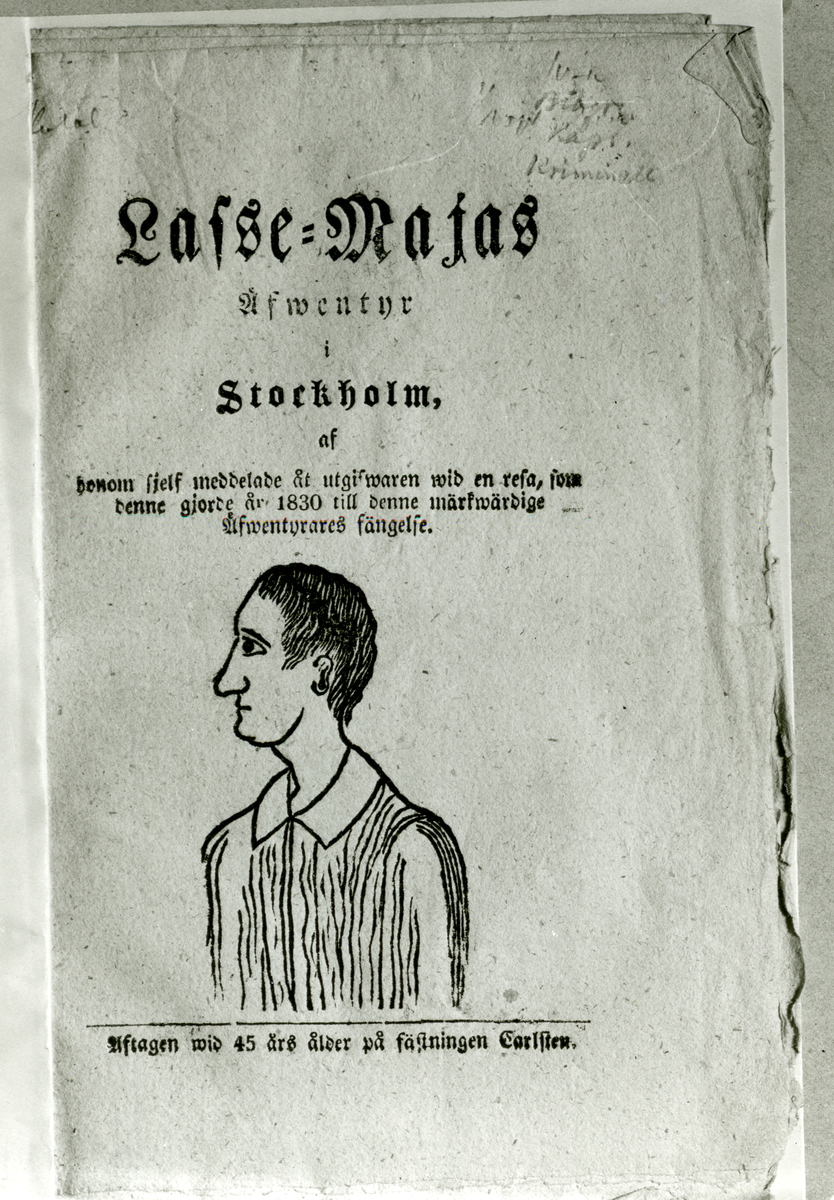 Kriminall
Lasse-Majas
Äfwentyr
i
Stockholm,
af
honom sjelf meddelade åt utgifwaren wid en resa, som
denne gjorde år 1830 till denne märkwärdige
Äfwentyrares fängelse.
Aftagen wid 45 års ålder på fästningen Carlsten.